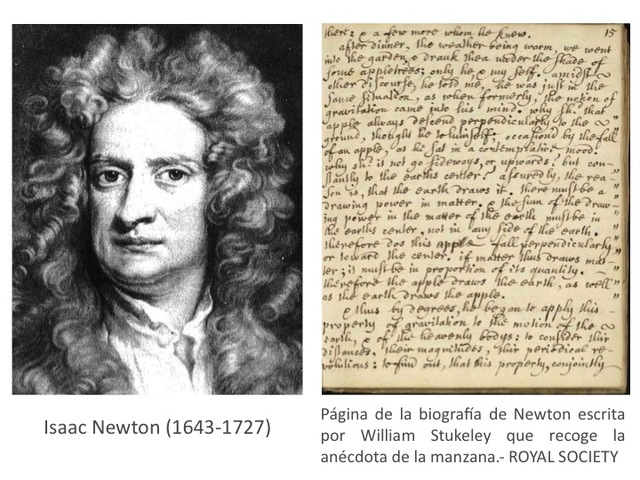 there; & a few more whom he knew. 15
after dinner, the weather being warm, we went
into the garden, & drank thea under the shade of
some appletrees; only he & my self. amidst
other discourse, he told me, he was just in the
same situation, as when formerly, the notion of
gravitation came into his mind. why sh.d that
apple always descend perpendicularly to the
ground, thought he to himself; occasion'd by the fall
of an apple, as he sat in a contemplative mood.
why sh.d it not go sideways, or upwards? but con-
stantly to the earths center? assuredly, the rea-
son is, that the earth draws it. there must be a
drawing power in matter. & the sum of the draw-
ing power in the matter of the earth must be in
the earths center, not in any side of the earth.
therefore dos this apple fall perpendicularly
or toward the center. if matter thus draws mat-
ter; it must be in proportion of its quantity.
therefore the apple draws the earth, as well
as the earth draws the apple.
& thus by degrees, he began to apply this
property of gravitation to the motion of the
earth, & of the heavenly bodys: to consider their
distances, their magnitudes, their periodical re-
volutions: to find out, that this property, conjointly
Isaac Newton (1643-1727)
Página de la biografía de Newton escrita
por William Stukeley que recoge la
anécdota de la manzana.- ROYAL SOCIETY